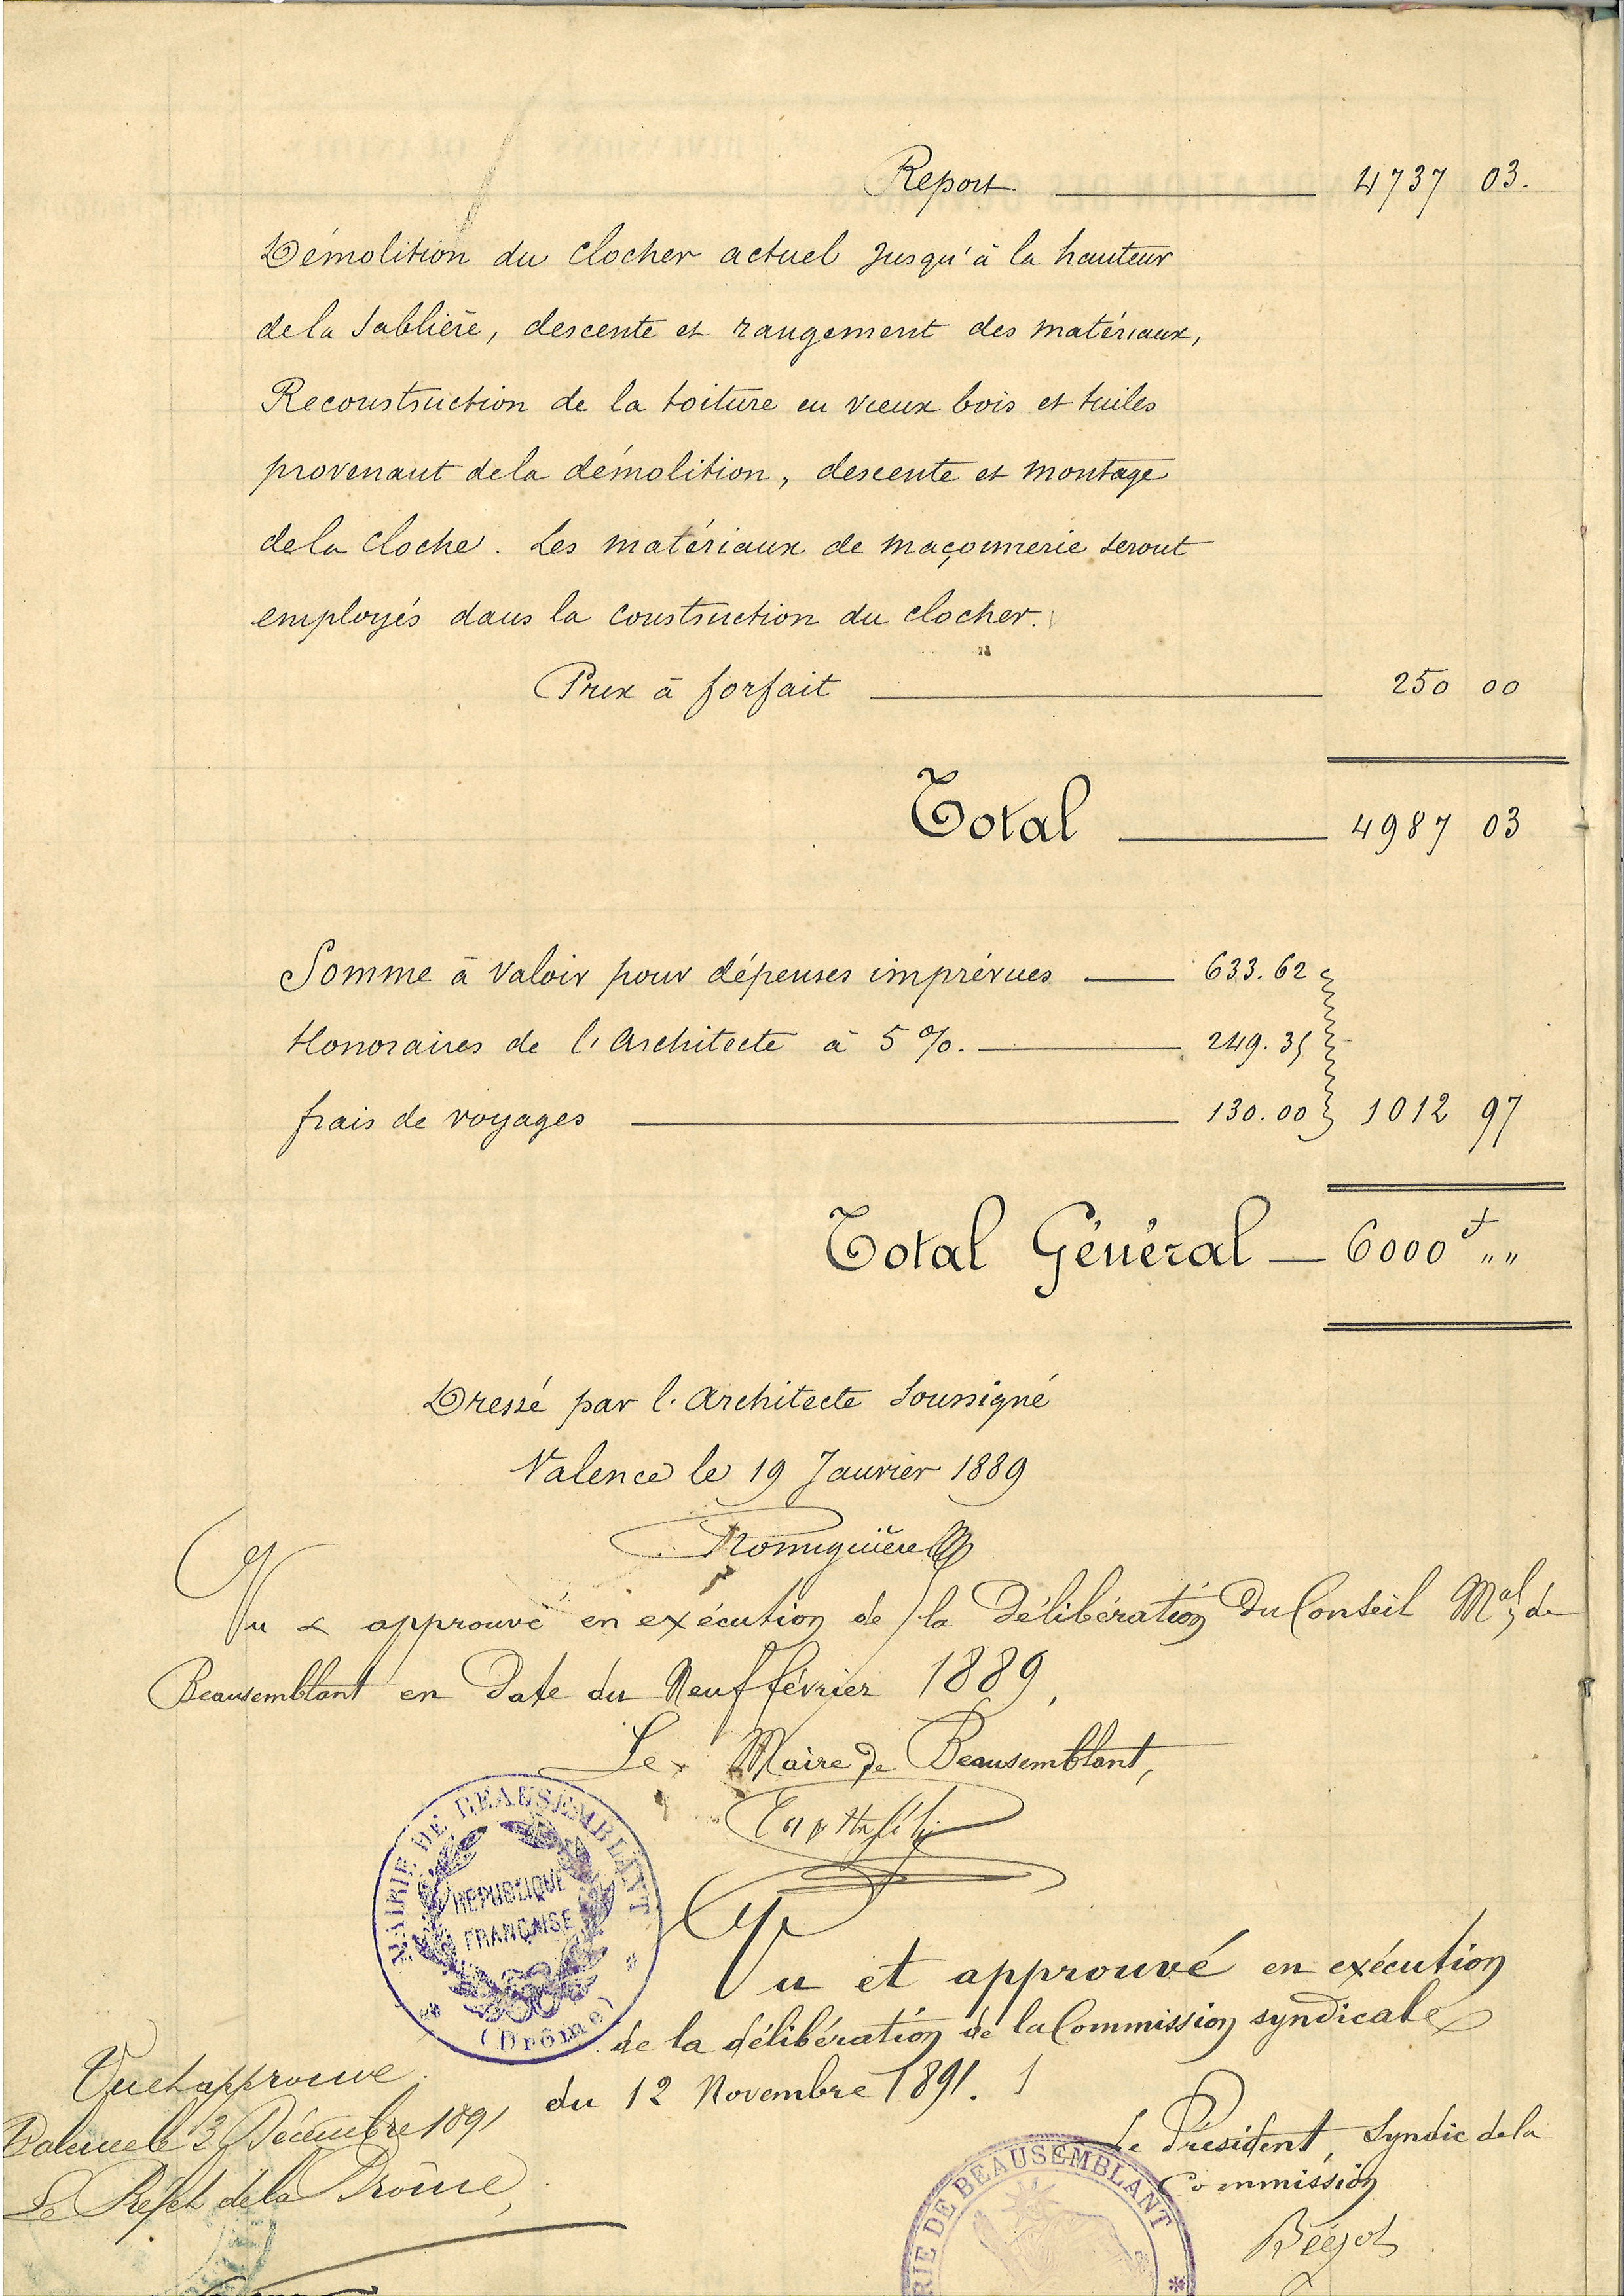 Report 4737 03.
Démolition du clocher actuel jusqu'à la hauteur
de la sablière, descente et rangement des matériaux,
Reconstruction de la toiture en vieux bois et tuiles
provenant de la démolition, descente et montage
de la cloche. Les matériaux de maçonnerie seront
employés dans la construction du clocher.
Prix à forfait 250 00
Total 4987 03
Somme à valoir pour dépenses imprévues 633.62
Honoraires de l'Architecte à 5 %. 249.35
frais de voyages 130.00 1012 97
Total Général 6000 f " "
Dressé par l'Architecte soussigné
Valence le 19 Janvier 1889
Vu & approuvé en exécution de la Délibération Du Conseil Mal de
Beausemblant en Date du Neuf février 1889,
Le Maire de Beausemblant,
MAIRIE DE BEAUSEMBLANT
RÉPUBLIQUE
FRANÇAISE
(Drôme)
Vu et approuvé en exécution
de la délibération de la Commission syndicale
du 12 Novembre 1891.
Le Président, Syndic de la
Commission
Vu et approuvé
Valence le 3 Décembre 1891
Le Préfet de la Drôme,
RIE DE BEAUSEMBLANT